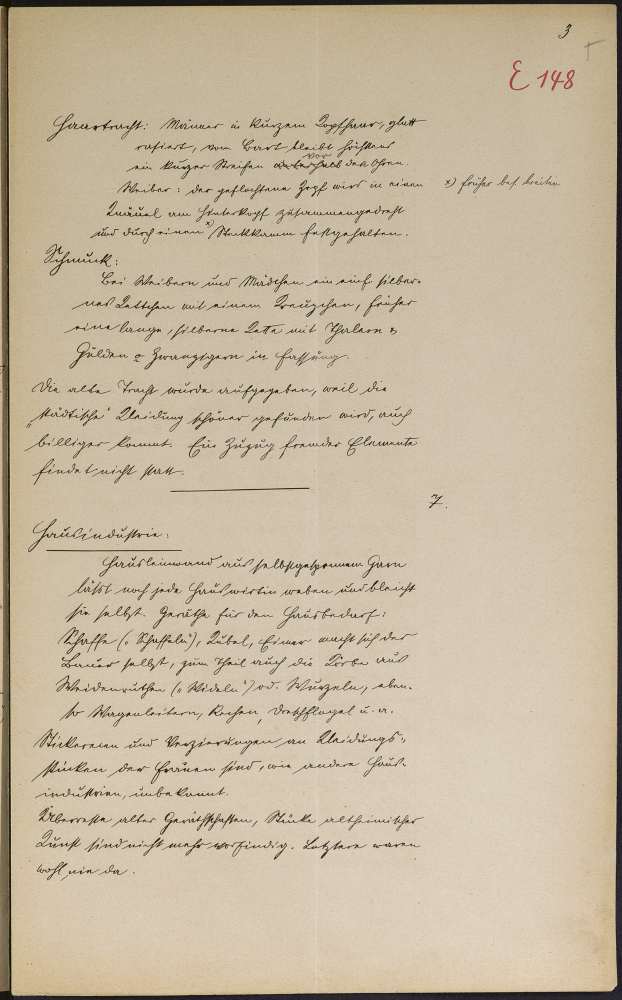 3
E 148
Haartracht: Männer in kurzem Kopfhaar, glatt
rasiert, vom Bart bleibt höchstens
ein kurzer Streifen unterhalb vor den Ohren.
Weiber: der geflochtene Zopf wird in einen
x) früher bes. breiten
Knäuel am Hinterkopf zusammengedreht
und durch einen x) Steckkamm festgehalten.
Schmuck:
Bei Weibern und Mädchen ein einf. silber-
nes Kettchen mit einem Kreuzchen, früher
eine lange, silberne Kette mit Thalern &
Gulden o Zwanzigern in Fassung.
Die alte Tracht wurde aufgegeben, weil die
„städtische" Kleidung schöner gefunden wird, auch
billiger kommt. Ein Zuzug fremder Elemente
findet nicht statt.
7.
Hausindustrie:
Hausleinwand aus selbstgesponnenem Garn
läßt noch jede Hauswirtin weben und bleicht
sie selbst. Geräthe für den Hausbedarf:
Schaffe („Schaffeln"), Kübel, Eimer macht sich der
Bauer selbst, zum Theil auch die Körbe aus
Weidenruthen („Wideln") od. Wurzeln, eben-
so Wagenleitern, Rechen, Dreschflegel u. a.
Stickereien und Verzierungen an Kleidungs-
stücken der Frauen sind, wie andere Haus-
industrien, unbekannt.
Überreste alter Geräthschaften, Stücke altheimischer
Kunst sind nicht mehr vorfindig. Letztere waren
wohl nie da.